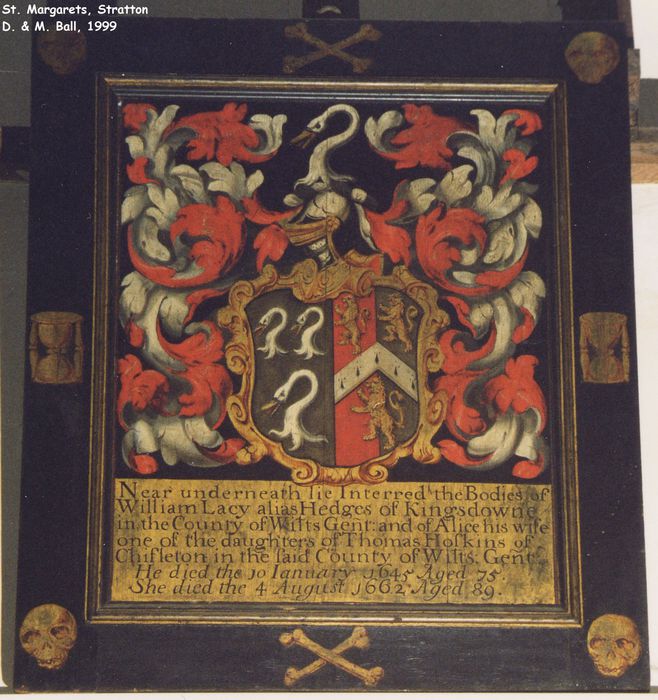 St. Margarets, Stratton
D. & M. Ball, 1999
Near underneath lie Interred the Bodies of
William Lacy alias Hedges of Kingsdowne
in the County of Wilts Gent: and of Alice his wife
one of the daughters of Thomas Hoſkins of
Chiſleton in the ſaid County of Wilts. Gent.
He died the 10 Ianuary 1645 Aged 75.
She died the 4 Auguſt 1662. Aged 89.